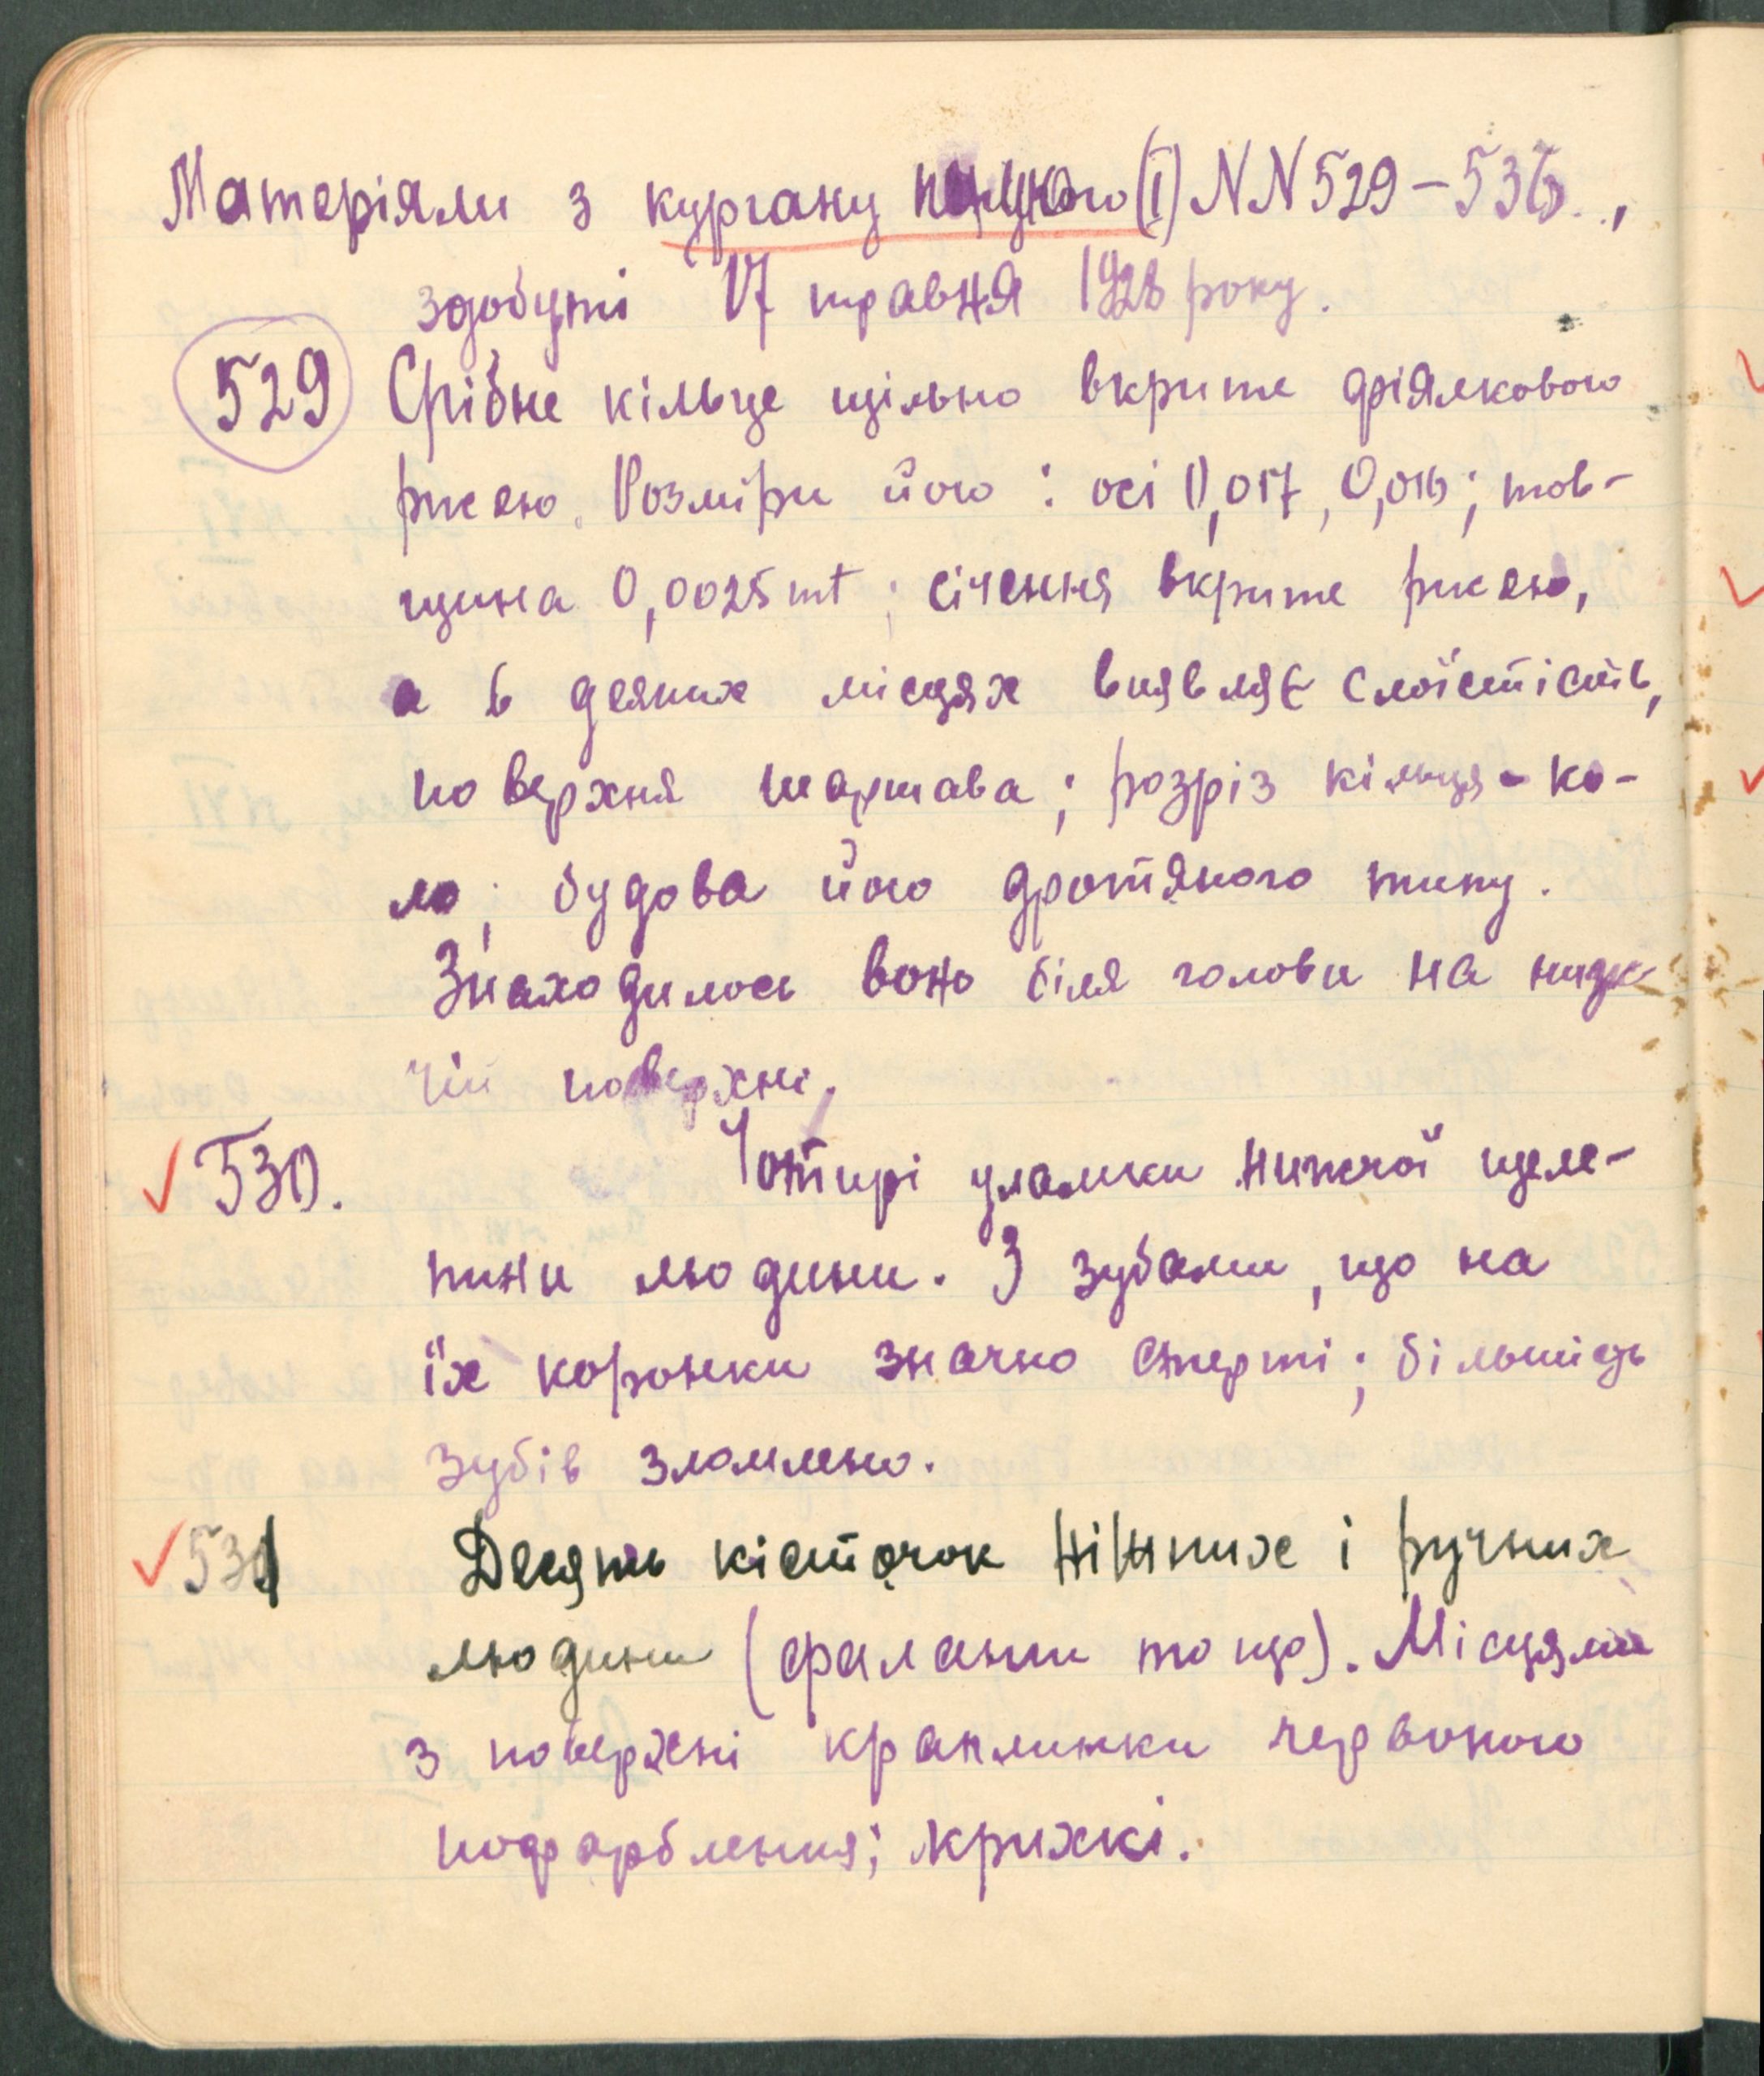 Матеріяли з кургану (I) NN 529–536.,
здобуті 17 травня 1928 року.
529 Срібне кільце щільно вкрите фіялковою
рисею. Розміри його: осі 0,017, 0,016; тов-
щина 0,0025 mt; січення вкрите рисею,
а в деяких місцях виявляє слоїстість,
поверхня шартава; розріз кільця - ко-
ло; будова його дротяного типу.
Знаходилось воно біля голови на ниж
чій поверхні.
530. Чотирі уламки нижчої щеле-
пини людини. З зубами, що на
їх коронки значно стерті; більшісь
зубів зломлено.
531 Десять кісточок ніжних і ручних
людини (фаланги тощо). Місцями
з поверхні краплинки червоного
пофарблення; крихкі.